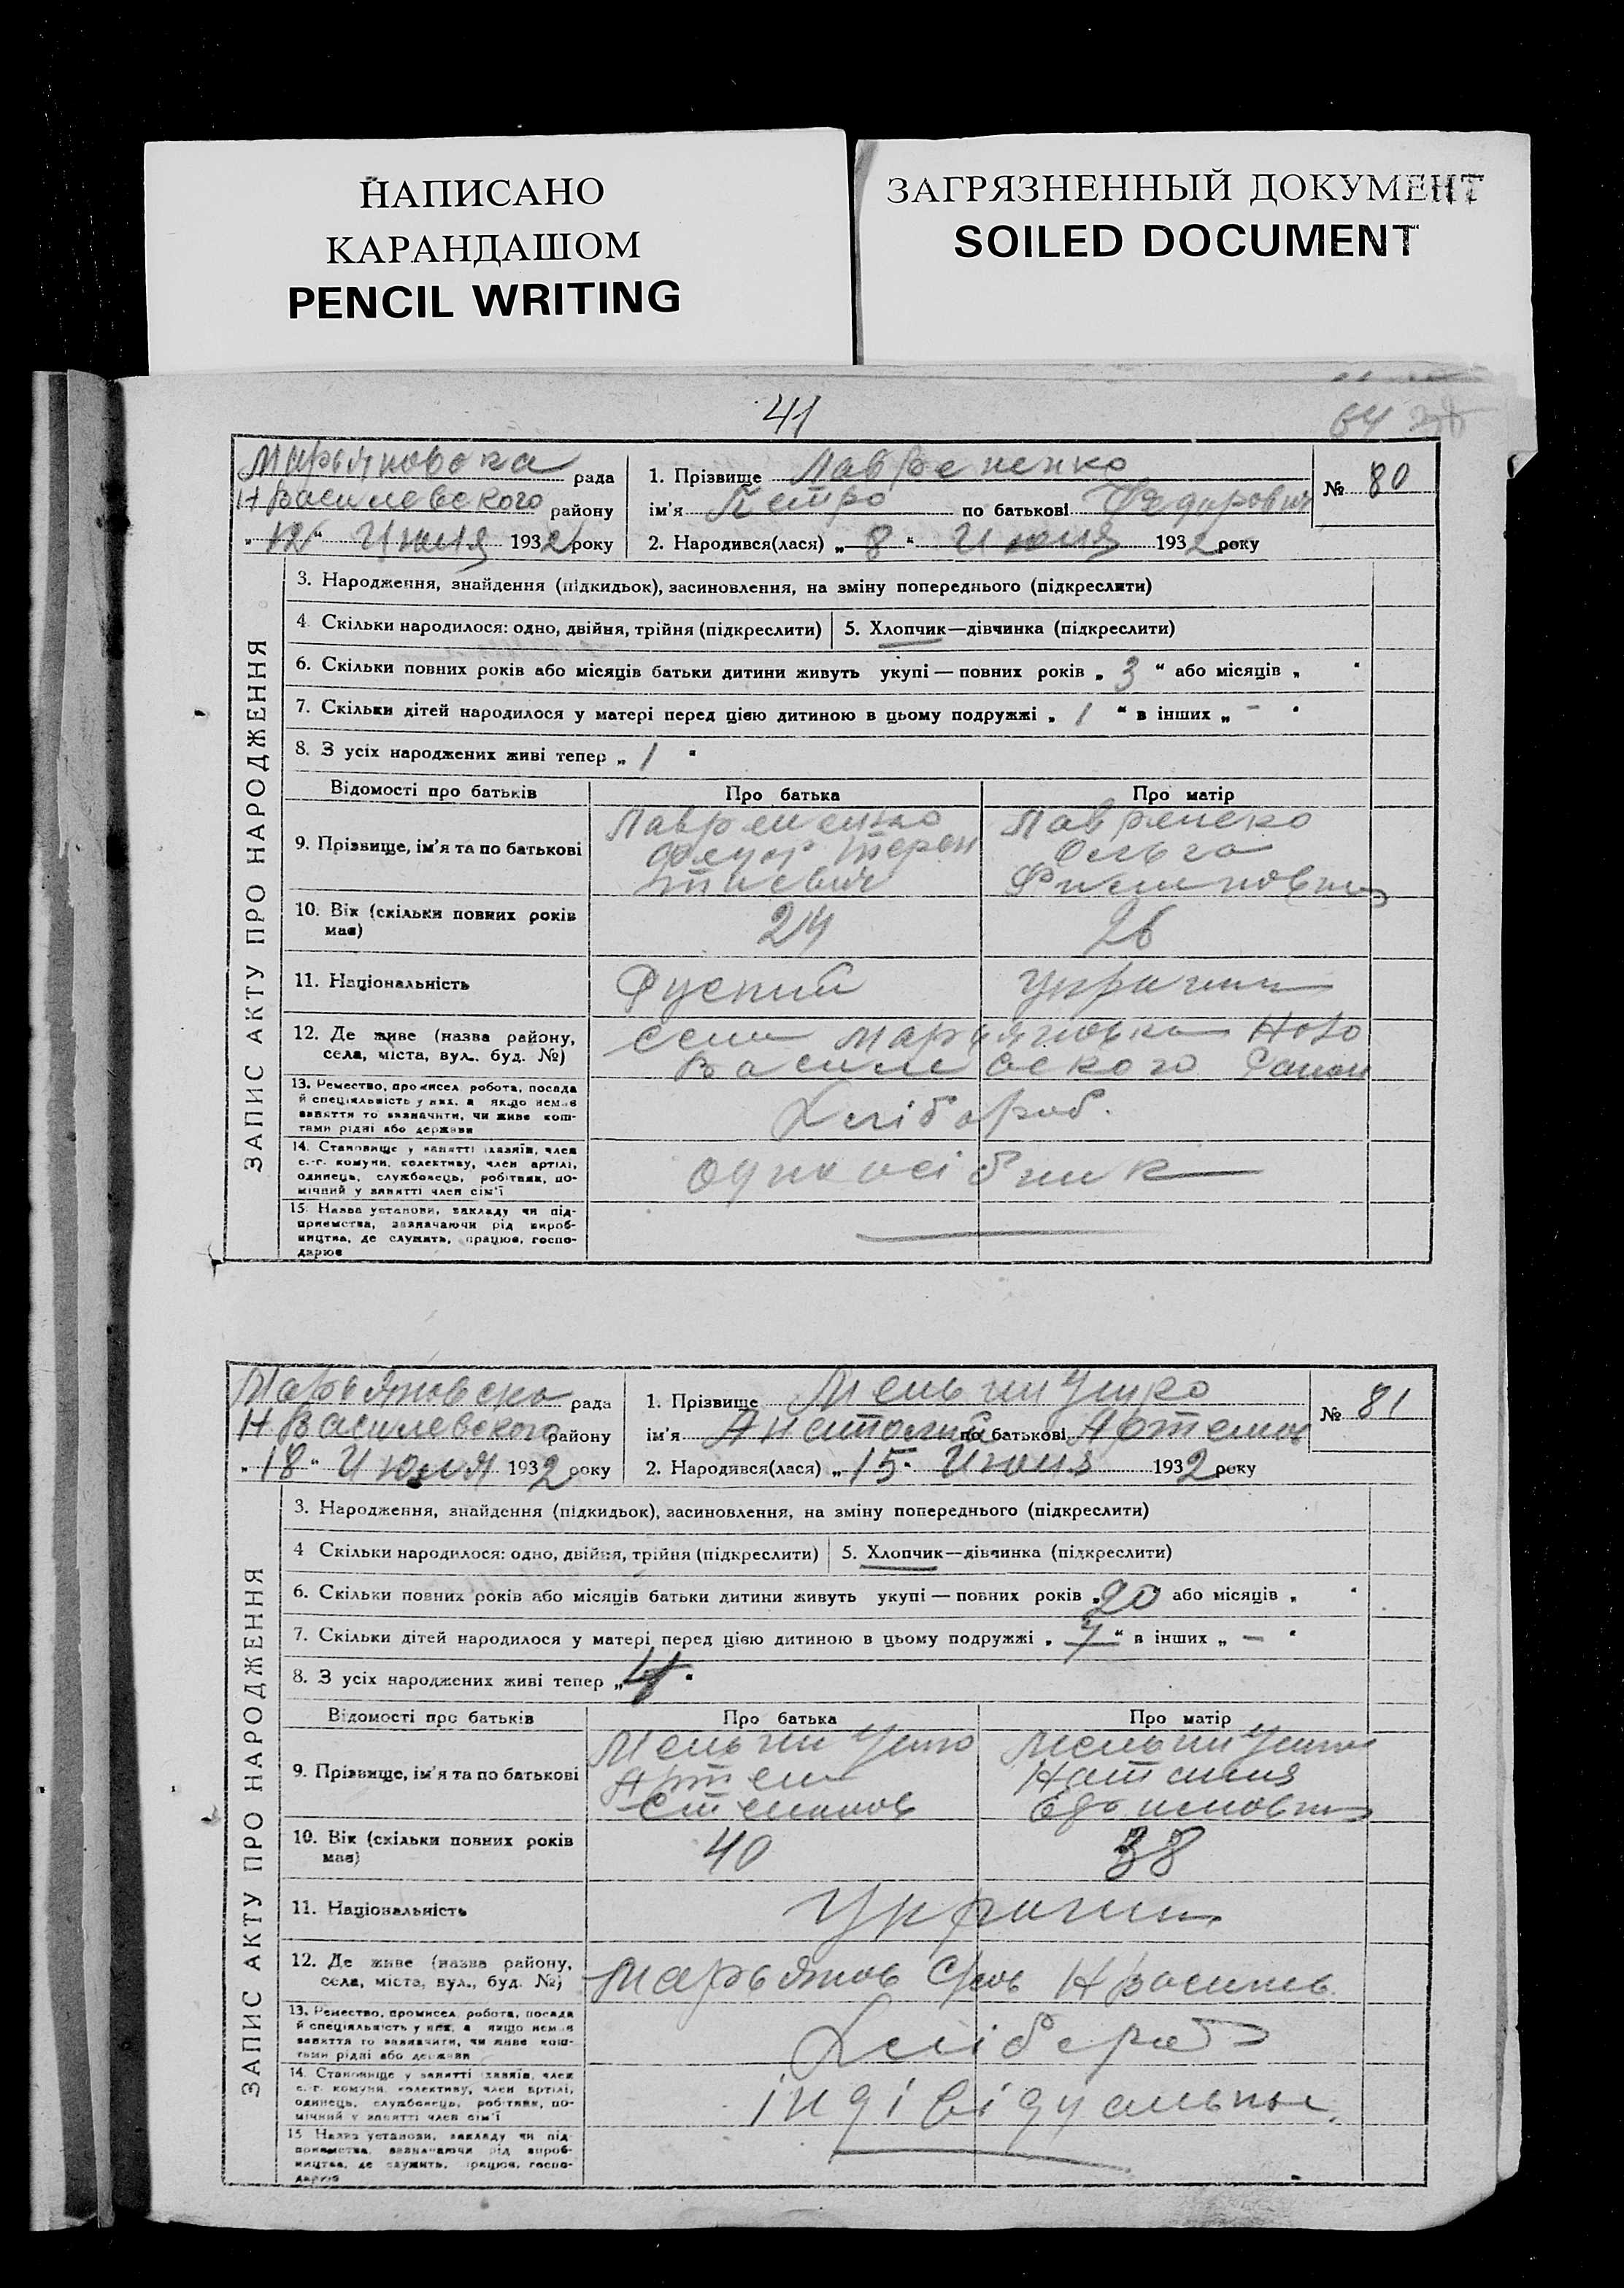 НАПИСАНО
КАРАНДАШОМ
PENCIL WRITING
ЗАГРЯЗНЕННЫЙ ДОКУМЕНТ
SOILED DOCUMENT
41
64
ЗАПИС АКТУ ПРО НАРОДЖЕННЯ
рада
Н Василевского району
"12" Июля 1932 року
1. Прізвище Лавренен​ко
ім'я Петро по батькові Федорович
№ 80
2. Народився(лася) „8" Июля 1932 року
3. Народження, знайдення (підкидьок), засиновлення, на зміну попереднього (підкреслити)
4. Скільки народилося: одно, двійня, трійня (підкреслити) 5. Хлопчик—дівчинка (підкреслити)
6. Скільки повних років або місяців батьки дитини живуть укупі — повних років „3" або місяців „ "
7. Скільки дітей народилося у матері перед цією дитиною в цьому подружжі „1" в інших „-"
8. З усіх народжених живі тепер „1"
Відомості про батьків Про батька Про матір
9. Прізвище, ім'я та по батькові
Ольга
10. Вік (скільки повних років має) 24 26
11. Національність Руский
12. Де живе (назва району, села, міста, вул. буд. №)
Ново
13. Ремество, промисел, робота, посада
й спеціяльність у них, а якщо немає
заняття то зазначити, чи живе кош-
тами рідні або держави
Хлібороб.
14. Становище у занятті: хазяїн, член
с.-г. комуни, колективу, член артілі,
одинець, службовець, робітник, по-
мічний у занятті член сім'ї
одноосібник
15. Назва установи, закладу чи під-
приємства, зазначаючи рід вироб-
ництва, де служить, працює, госпо-
дарює
ЗАПИС АКТУ ПРО НАРОДЖЕННЯ
рада
Н Василевского району
"18" Июля 1932 року
1. Прізвище
ім'я Анатолий по батькові Артемов
№ 81
2. Народився(лася) „15" Июля 1932 року
3. Народження, знайдення (підкидьок), засиновлення, на зміну попереднього (підкреслити)
4 Скільки народилося: одно, двійня, трійня (підкреслити) 5. Хлопчик—дівчинка (підкреслити)
6. Скільки повних років або місяців батьки дитини живуть укупі — повних років „20 або місяців „ "
7. Скільки дітей народилося у матері перед цією дитиною в цьому подружжі „7" в інших „—"
8. З усіх народжених живі тепер „4"
Відомості про батьків Про батька Про матір
9. Прізвище, ім'я та по батькові
Артем
Степанов
10. Вік (скільки повних років має) 40 38
11. Національність
12. Де живе (назва району, села, міста, вул., буд. №)
13. Ремество, промисел, робота, посада
й спеціяльність у них, а якщо немає
заняття то зазначити, чи живе кош-
тами рідні або держави
Хлібороб
14. Становище у занятті: хазяїн, член
с.-г. комуни, колективу, член артілі,
одинець, службовець, робітник, по-
мічний у занятті член сім'ї
15 Назва установи, закладу чи під-
приємства, зазначаючи рід вироб-
ництва, де служить, працює, госпо-
дарює